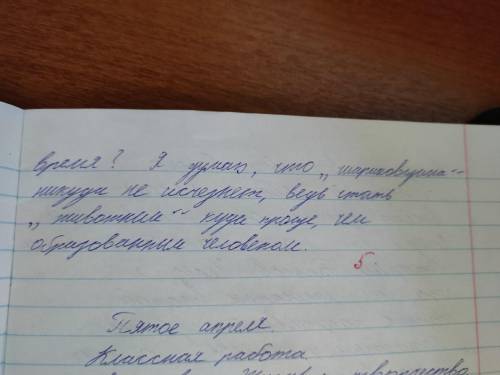 время? Я думаю, что „шариковщина“
никуда не исчезнет, ведь стать
„животным“ куда проще, чем
образованным человеком.
5
Пятое апреля.
Классная работа